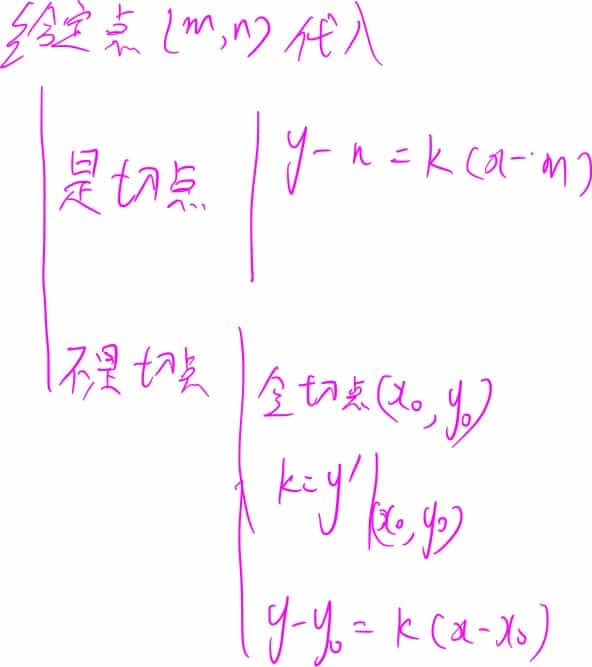 给定点(m,n)代入
是切点
y-n=k(x-m)
不是切点
令切点(x₀,y₀)
k=y'|(x₀,y₀)
y-y₀=k(x-x₀)